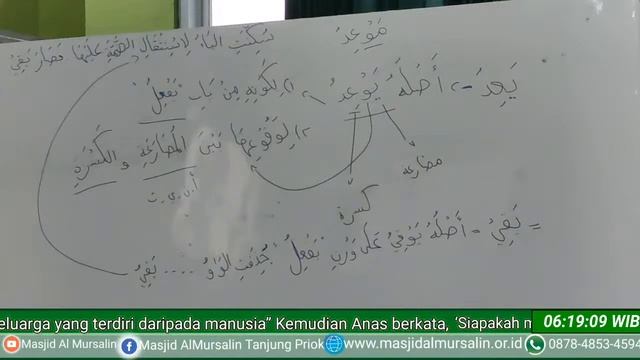 مَوْعِدُ
سُكِّنَتِ اليَاءُ لِاسْتِثْقَالِ الضَّمَّةِ عَلَيْهَا فَصَارَ يَفِيْ
يَعِدُ = أَصْلُهُ يَوْعِدُ ١) لِكَوْنِهِ مِنْ بَابِ "يَفْعِلُ"
٢) لِوُقُوْعِهَا بَيْنَ المُضَارَعَةِ وَ الكَسْرَةِ
مضارعة
أ.ن.ي.ت
كسرة
= يَفِيْ = أَصْلُهُ يَوْفِيُ عَلَى وَزْنِ يَفْعِلُ حُذِفَتِ الوَاوُ .... يَفِيُ
eluarga yang terdiri daripada manusia” Kemudian Anas berkata, ‘Siapakah m
06:19:09 WIB
Masjid Al Mursalin
Masjid AlMursalin Tanjung Priok
www.masjidalmursalin.or.id
0878-4853-4594